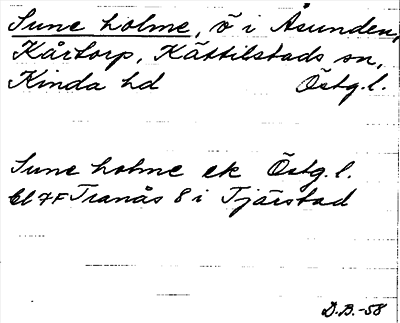 Sune holme, ö i Åsunden,
Kårtorp, Kättilstads sn,
Kinda hd Östg.l.
Sune holme ek Östg. l.
bl 7F Tranås 8 i Tjärstad
D.B.-58